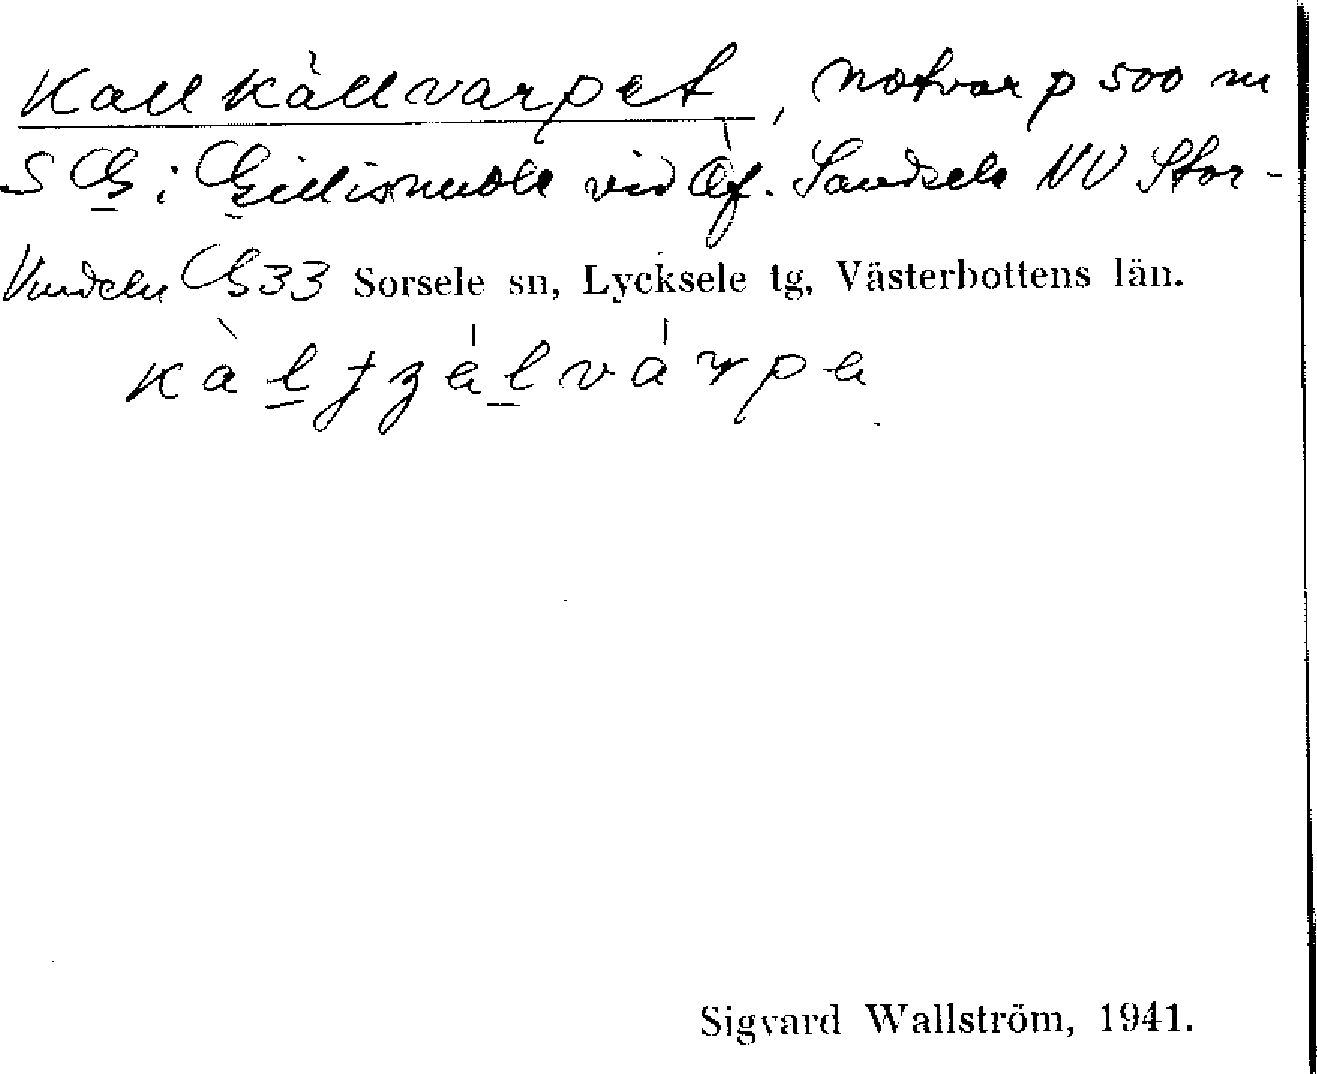 Kallkällvarpet, notvarp 500 m
S G i Gillisnuole vid Sandsele NV Stor-
Vindeln G33 Sorsele sn, Lycksele tg, Västerbottens län.
Sigvard Wallström, 1941.